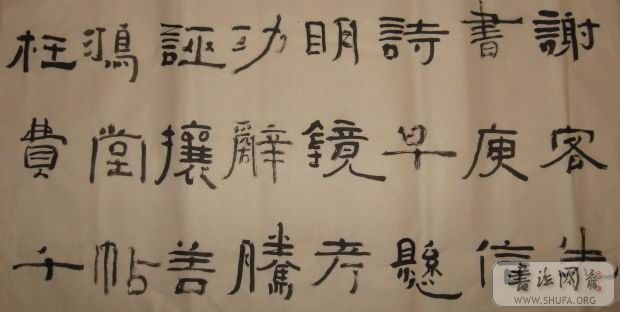 謝客先
書庾信
詩早懸
明鏡考
功辭騰
誣攘善
鴻堂帖
枉費千
書法网
WWW.SHUFA.ORG